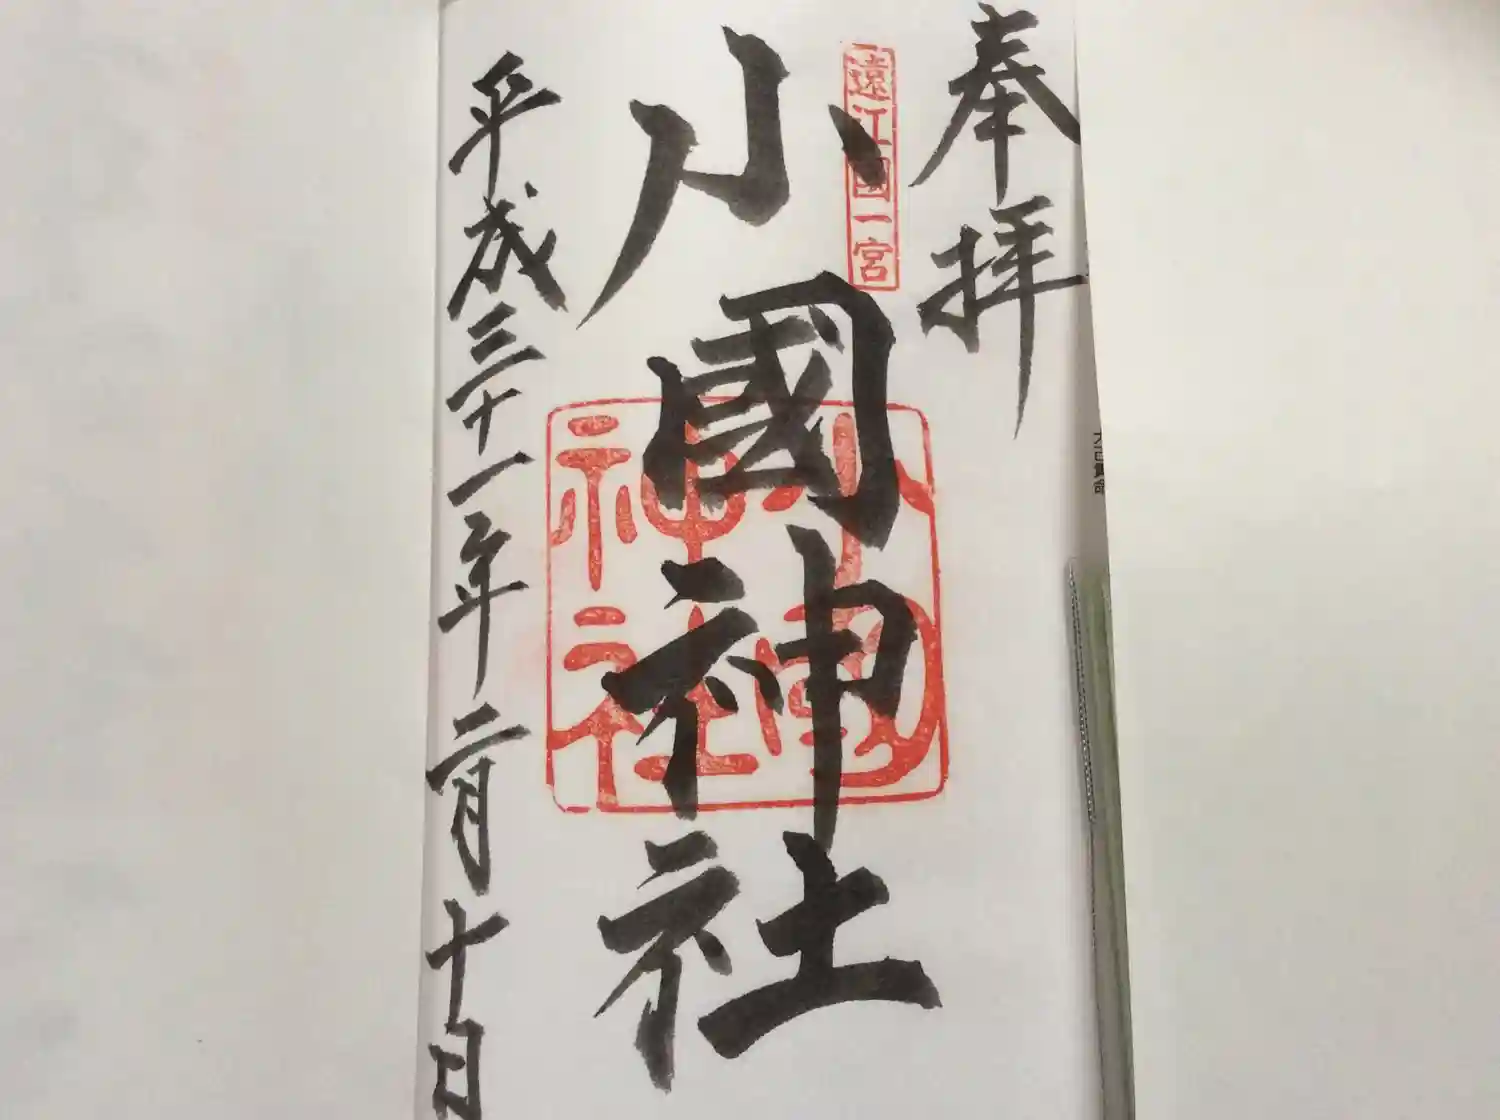 奉拝
遠江國一宮
小國神社
小國神社
平成三十一年二月十日
大己貴命